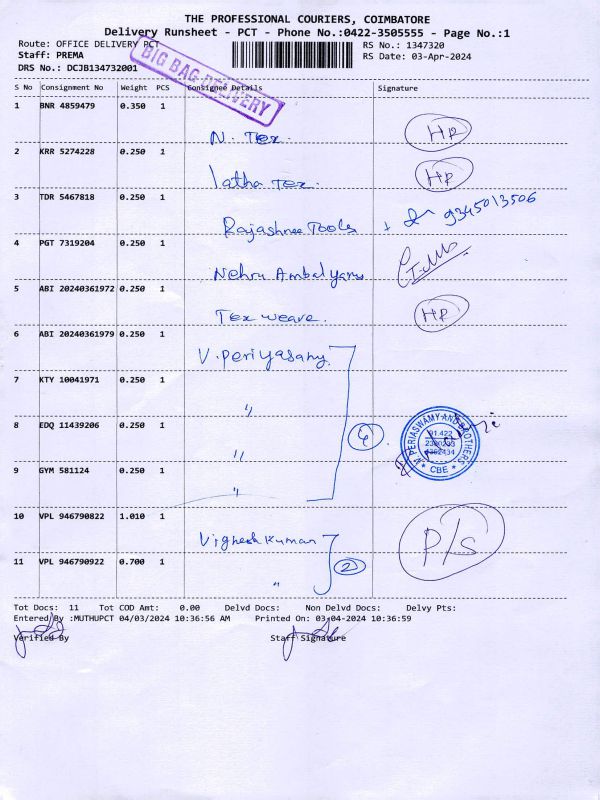 THE PROFESSIONAL COURIERS, COIMBATORE
Delivery Runsheet - PCT - Phone No.:0422-3505555 - Page No.:1
Route: OFFICE DELIVERY PCT
RS No.: 1347320
Staff: PREMA
RS Date: 03-Apr-2024
DRS No.: DCJB134732001
BIG BAG DELIVERY
S No Consignment No Weight PCS Consignee Details Signature
1 BNR 4859479 0.350 1
N. Tex. HP
2 KRR 5274228 0.250 1
latha Tex. HP
3 TDR 5467818 0.250 1
Rajashree Tools 9345013506
4 PGT 7319204 0.250 1
Nehru
5 ABI 20240361972 0.250 1
Tex weave. HP
6 ABI 20240361979 0.250 1
V. Periyasamy
7 KTY 10041971 0.250 1
"
8 EDQ 11439206 0.250 1
" 4
9 GYM 581124 0.250 1
"
PERIASWAMY AND BROTHERS
CBE
10 VPL 946790822 1.010 1
Vighesh Kumar P/S
11 VPL 946790922 0.700 1
" 2
Tot Docs: 11 Tot COD Amt: 0.00 Delvd Docs: Non Delvd Docs: Delvy Pts:
Entered By :MUTHUPCT 04/03/2024 10:36:56 AM Printed On: 03-04-2024 10:36:59
Verified By Staff Signature